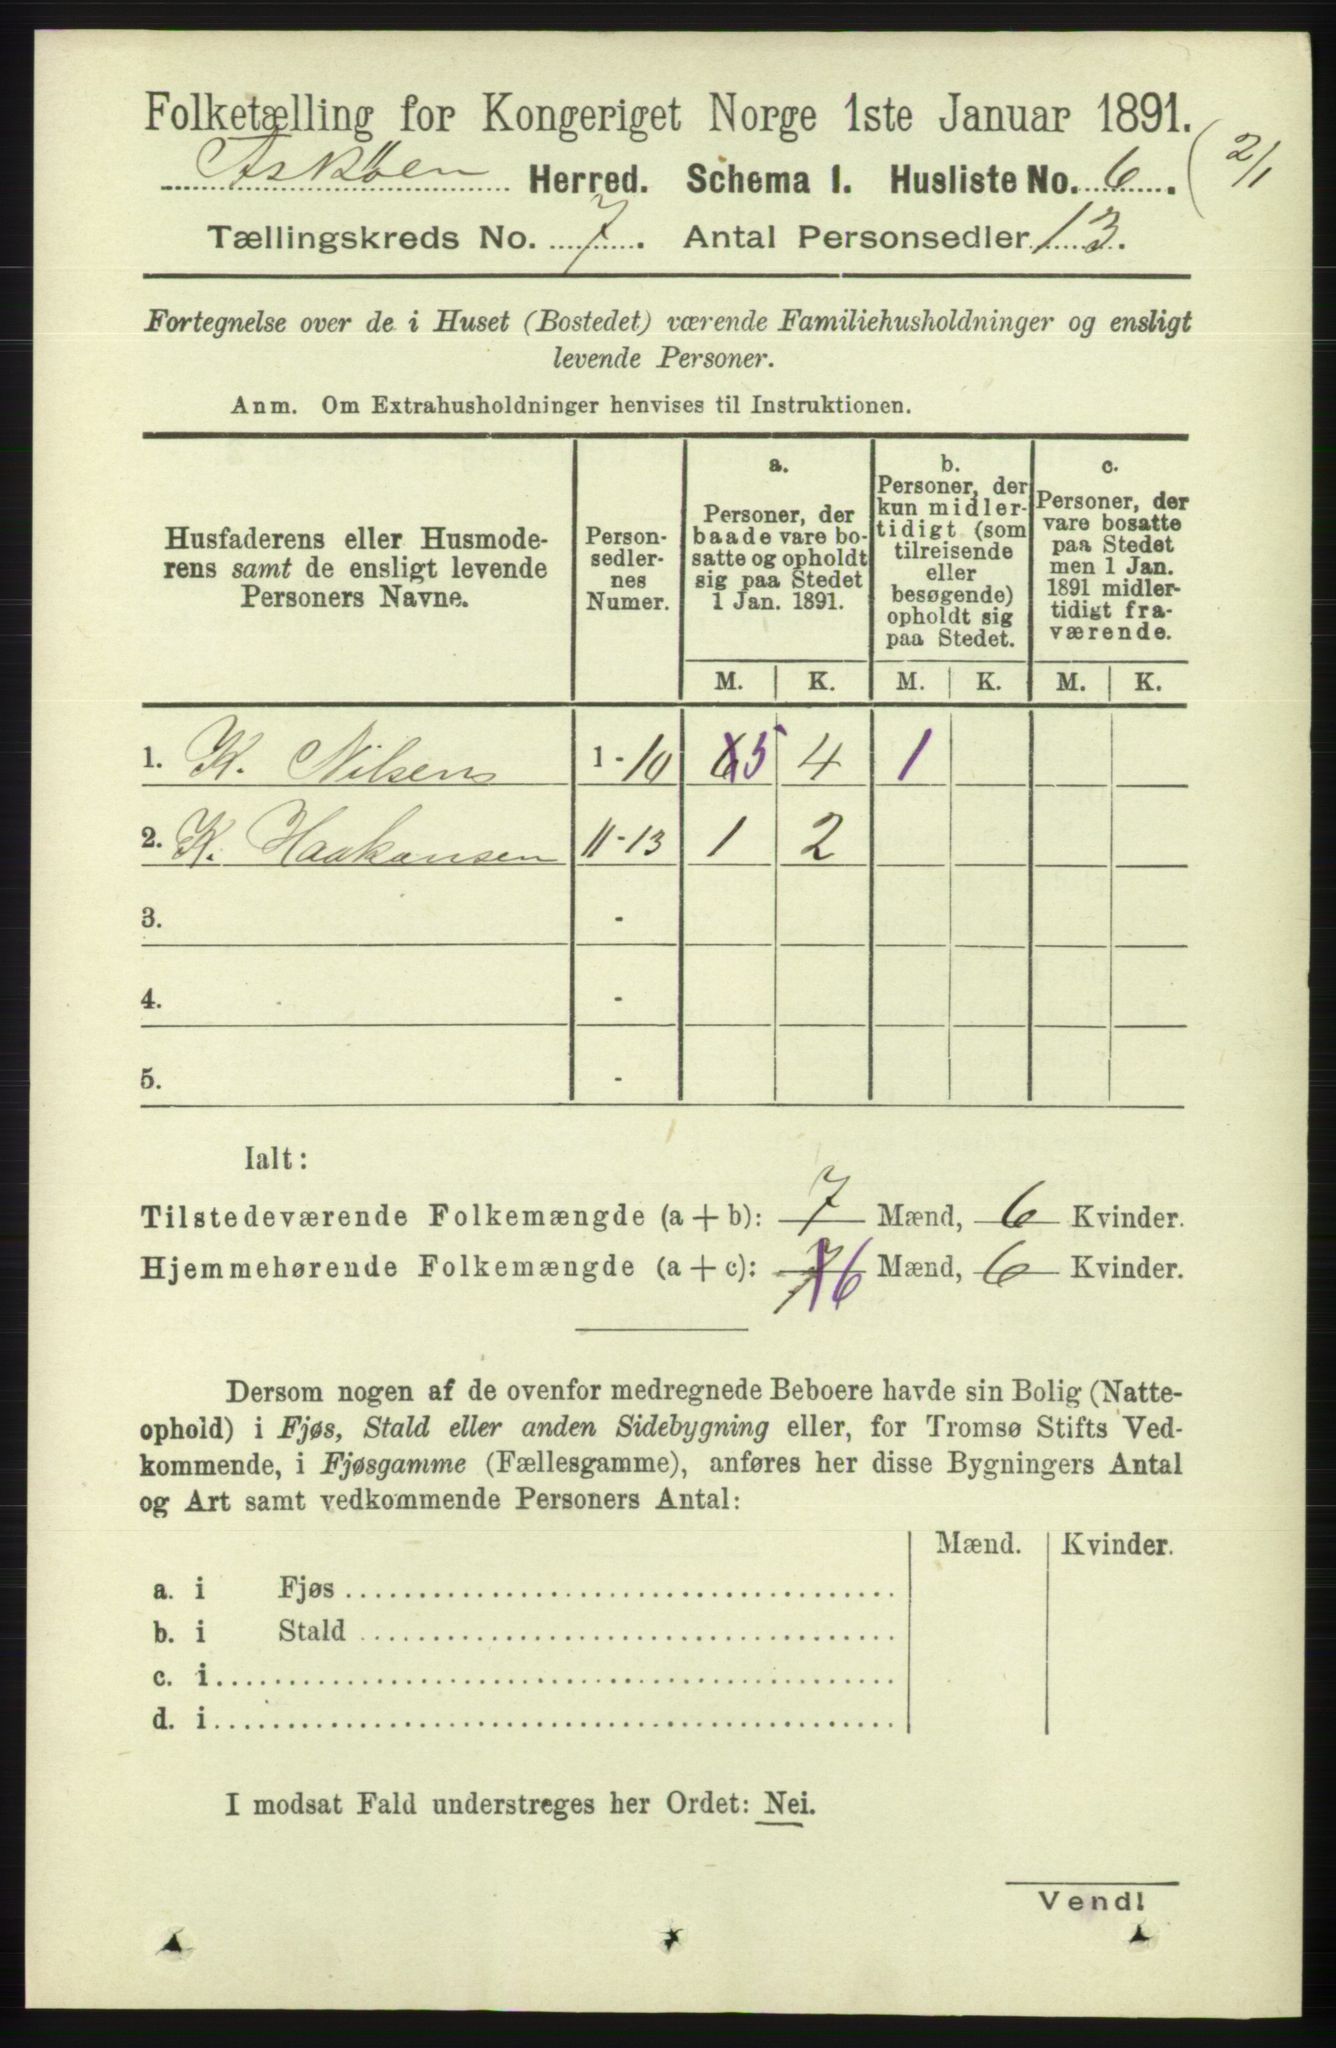 Folketælling for Kongeriget Norge 1ste Januar 1891.
Askøen Herred. Schema 1. Husliste No. 6. (2/1
Tællingskreds No. 7. Antal Personsedler 13.
Fortegnelse over de i Huset (Bostedet) værende Familiehusholdninger og ensligt
levende Personer.
Anm. Om Extrahusholdninger henvises til Instruktionen.
Husfaderens eller Husmode-
rens samt de ensligt levende
Personers Navne.
Person-
sedler-
nes
Numer.
a.
Personer, der
baade vare bo-
satte og opholdt
sig paa Stedet
1 Jan. 1891.
b.
Personer, der
kun midler-
tidigt (som
tilreisende
eller
besøgende)
opholdt sig
paa Stedet.
c.
Personer, der
vare bosatte
paa Stedet
men 1 Jan.
1891 midler-
tidigt fra-
værende.
M. K. M. K. M. K.
1. K. Nilsen 1-10 6 5 4 1
2. K. Haakansen 11-13 1 2
3. -
4. -
5. -
Ialt:
Tilstedeværende Folkemængde (a + b): 7 Mænd, 6 Kvinder.
Hjemmehørende Folkemængde (a + c): 7 6 Mænd, 6 Kvinder.
Dersom nogen af de ovenfor medregnede Beboere havde sin Bolig (Natte-
ophold) i Fjøs, Stald eller anden Sidebygning eller, for Tromsø Stifts Ved-
kommende, i Fjøsgamme (Fællesgamme), anføres her disse Bygningers Antal
og Art samt vedkommende Personers Antal:
Mænd. Kvinder.
a. i Fjøs
b. i Stald
c. i
d. i
I modsat Fald understreges her Ordet: Nei.
Vend!